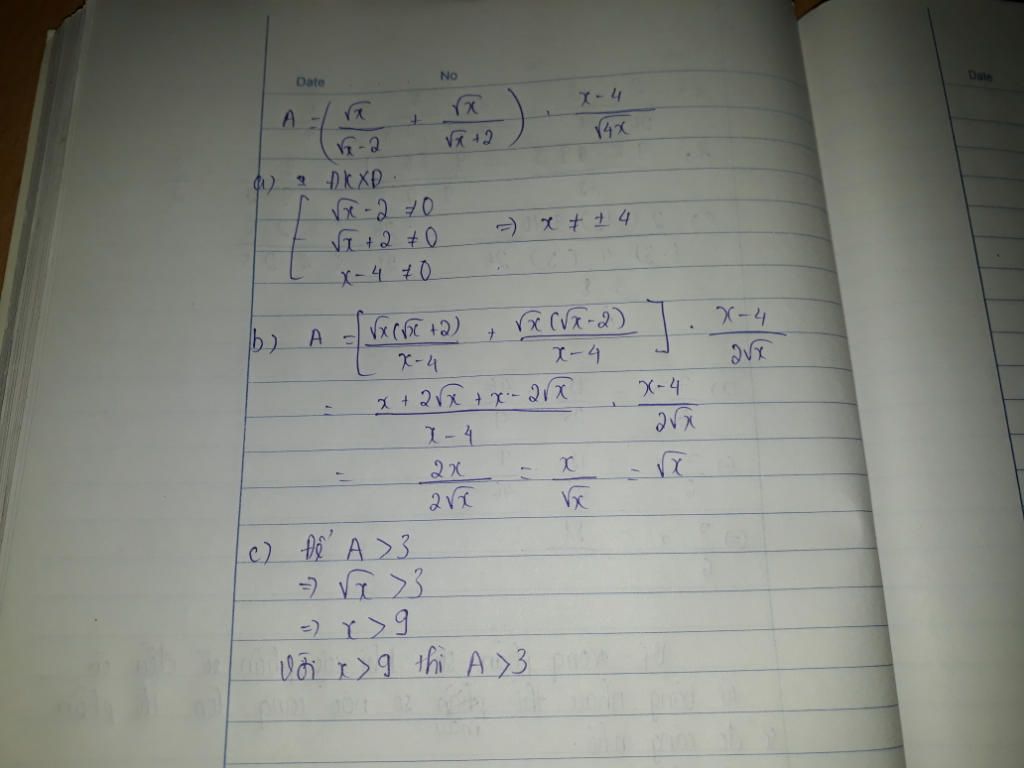 Date No
A = (√x/(√x-2) + √x/(√x+2)) . (x-4)/√4x
a) ĐKXĐ.
[ √x-2 ≠0
√x+2 ≠0 => x ≠ ±4
x-4 ≠0
b) A = [√x(√x+2)/(x-4) + √x(√x-2)/(x-4)] . (x-4)/2√x
= (x+2√x+x-2√x)/(x-4) . (x-4)/2√x
= 2x/2√x = x/√x = √x
c) Để A >3
=> √x >3
=> x >9
Với x>9 thì A >3
Date